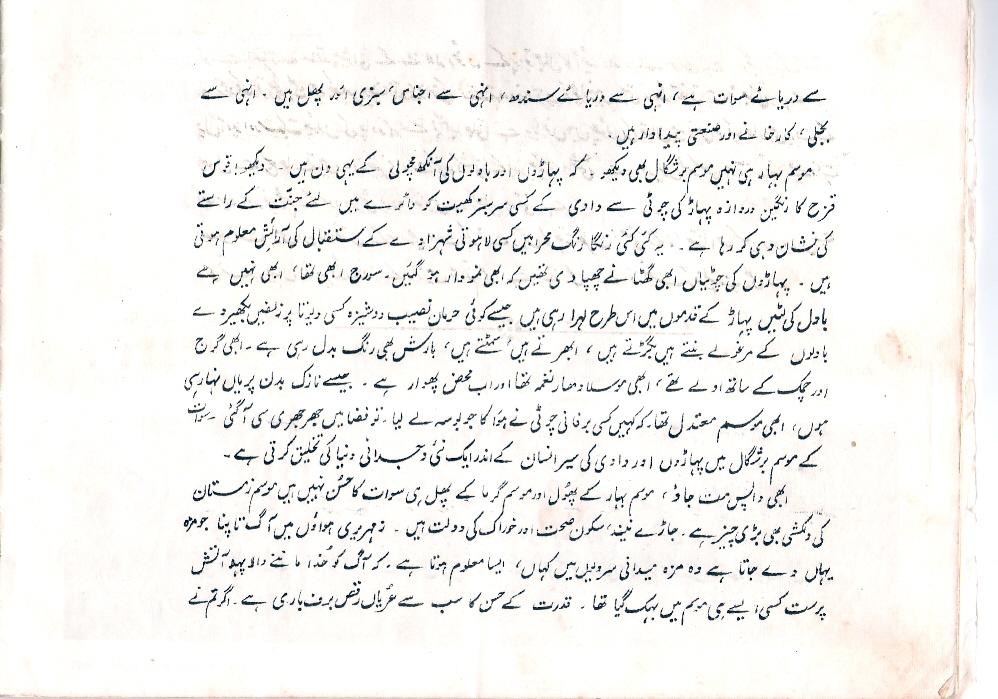 سے دریائے سوات ہے، انہی سے دریائے سندھ، انہی سے اجناس، سبزی اور پھل ہیں۔ انہی سے
بجلی، کارخانے اور صنعتی پیداوار ہیں۔
موسم بہار ہی نہیں موسم برشگال بھی دیکھو۔ کہ پہاڑوں اور بادلوں کی آنکھ مچولی کے یہی دن ہیں۔ دیکھو! قوس
قزح کا رنگین دروازہ پہاڑ کی چوٹی سے وادی کے کسی سرسبز کھیت کو دائرے میں لئے جنت کے راستے
کی نشان دہی کر رہا ہے۔ یہ کئی کئی رنگا رنگ محرابیں کسی لاہوتی شہزادے کے استقبال کی آرائش معلوم ہوتی
ہیں۔ پہاڑوں کی چوٹیاں ابھی گھٹا نے چھپا دی تھیں کہ ابھی نمودار ہو گئیں۔ سورج ابھی تھا، ابھی نہیں ہے
بادل کی لٹیں پہاڑ کے قدموں میں اس طرح لہرا رہی ہیں جیسے کوئی حرمان نصیب دوشیزہ کسی دیوتا پر زلفیں بکھیر دے
بادلوں کے مرغولے بنتے ہیں بگڑتے ہیں، ابھرتے ہیں، سمٹتے ہیں، بارش بھی رنگ بدل رہی ہے۔ ابھی گرج
اور چمک کے ساتھ اولے تھے، ابھی موسلا دھار نغمہ تھا اور اب محض پھوار ہے۔ جیسے نازک بدن پریاں نہا رہی
ہوں، ابھی موسم معتدل تھا۔ کہ کہیں کسی برفانی چوٹی نے ہوا کا جو بوسہ لے لیا۔ تو فضا میں جھرجھری سی آ گئی۔ سوات
کے موسم برشگال میں پہاڑوں اور وادی کی سیر انسان کے اندر ایک نئی وجدانی دنیا کی تخلیق کرتی ہے۔
ابھی واپس مت جاؤ، موسم بہار کے پھول اور موسم گرما کے پھل ہی سوات کا حسن نہیں ہیں موسم زمستان
کی دلکشی بھی بڑی چیز ہے۔ جاڑے نیند، سکون صحت اور خوراک کی دولت ہیں۔ زمہریری ہواؤں میں آگ تاپنا جو مزہ
یہاں دے جاتا ہے وہ مزہ میدانی سردیوں میں کہاں، ایسا معلوم ہوتا ہے۔ کہ آگ کو خدا ماننے والا پہلا آتش
پرست کسی ایسے ہی موسم میں بہک گیا تھا۔ قدرت کے حسن کا سب سے عریاں رقص برف باری ہے۔ اگر تم نے